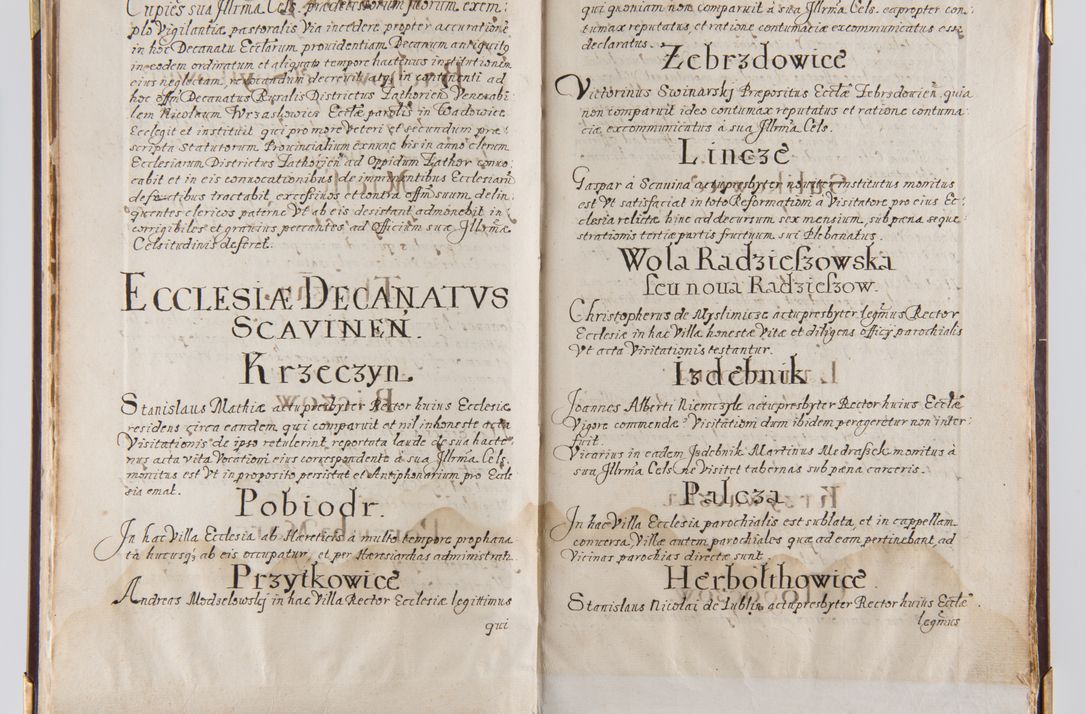 Cupiēs sua Illrma Cels. praedecessorum suorum exem:
plo Vigilantia pastoralis Via incedere propter accuratione
in hoc Decanatu Ecclarum prouidentiam Decanum antiquitq
in eodem ordinatum et aliquāto tempore hactenus institutionem
eius neglectam, reuocandum decreuit, atq; in continenti ad
hoc offm Decanatus Ruralis Districtus Zathorien Venerabi
lem Nicolaum Ecclae paroliś in Wadowice
Ecclegit et instituit qui pro more Veteri et secundum prae
scripta Statutorum Prouincialium exnunc bis in anno clerum
Ecclesiarum Districtus Zathorien ad Oppidum Zathor conuo
cabit et in eis conuocationibus de imminentibus Ecclesiarū
defectibus tractabit excessiuos et contra offm suum delin
quentes clericos paterne Vt ab eis desistant admonebit in
corrigibiles et grauius peccantes ad Officium suae Illrmae
Celsitudinis deferet.
ECCLESIÆ DECANATVS
SCAVINEN.
Krzeczyn.
Stanislaus Mathiae actu presbyter Rector huius Ecclesiae
residens circa eandem qui comparuit et nil inhoneste acta
Visitationis de ipso retulerint, reportata laude de sua hacte
nus acta vita Vocationi eius correspondente à sua Illrma Cels.
monitus est Vt in proposito persistat et Antiphonarium pro Eccle
sia emat.
Pobiodr.
In hac Villa Ecclesia ab Haereticis à multo tempore prophana
ta hucusq; ab eis occupatur, et per Haeresiarchas administrata
Przytkowicē
Andreas Modzelowskj in hac Villa Rector Ecclesiae legittimus
qui
qui quoniam non comparuit à sua Illrma Cels. eapropter con
tumax reputatus et ratione contumaciae excommunicatus esse
declaratus.
Zebrzdowicē
Victorinus Swinarskj Praepositus Ecclae Zebrzdovien. quia
non comparuit ideo contumax reputatus et ratione contuma
ciae excommunicatus à sua Illrma Cels.
Linczē
Gaspar à Scauina actu presbyter nouiter institutus monitus
est Vt satisfaciat in toto Reformationi à Visitatore pro eius Ec
clesia relictae hinc ad decursum sex mensium, sub paena seque
strationis tertiae partis fructuum sui Plebanatus.
Wola Radzieszowska
seu noua Radzieszow.
Christopherus de Myslimicze actu presbyter legmus Rector
Ecclesiae in hac Villa honestae Vitae et diligens officij parochialis
Vt acta Visitationis testantur.
Izdebnik
Joannes Alberti Niemczyk actu presbyter Rector huius Ecclae
Vigore commendae Visitationi dum ibidem perageretur non inter
fuit.
Vicarius in eadem Jzdebnik Martinus Medrasick monitus à
sua Illrma Cels Ne Visitet tabernas sub paena carceris.
Palcza
In hac Villa Ecclesia parochialis est sublata, et in cappellam
conuersa Villae autem parochiales quae ad eam pertinebant, ad
Vicinas parochias directae sunt.
Herbolthowicē.
Stanislaus Nicolai de Lublin actu presbyter Rector huius Ecclae
legmus